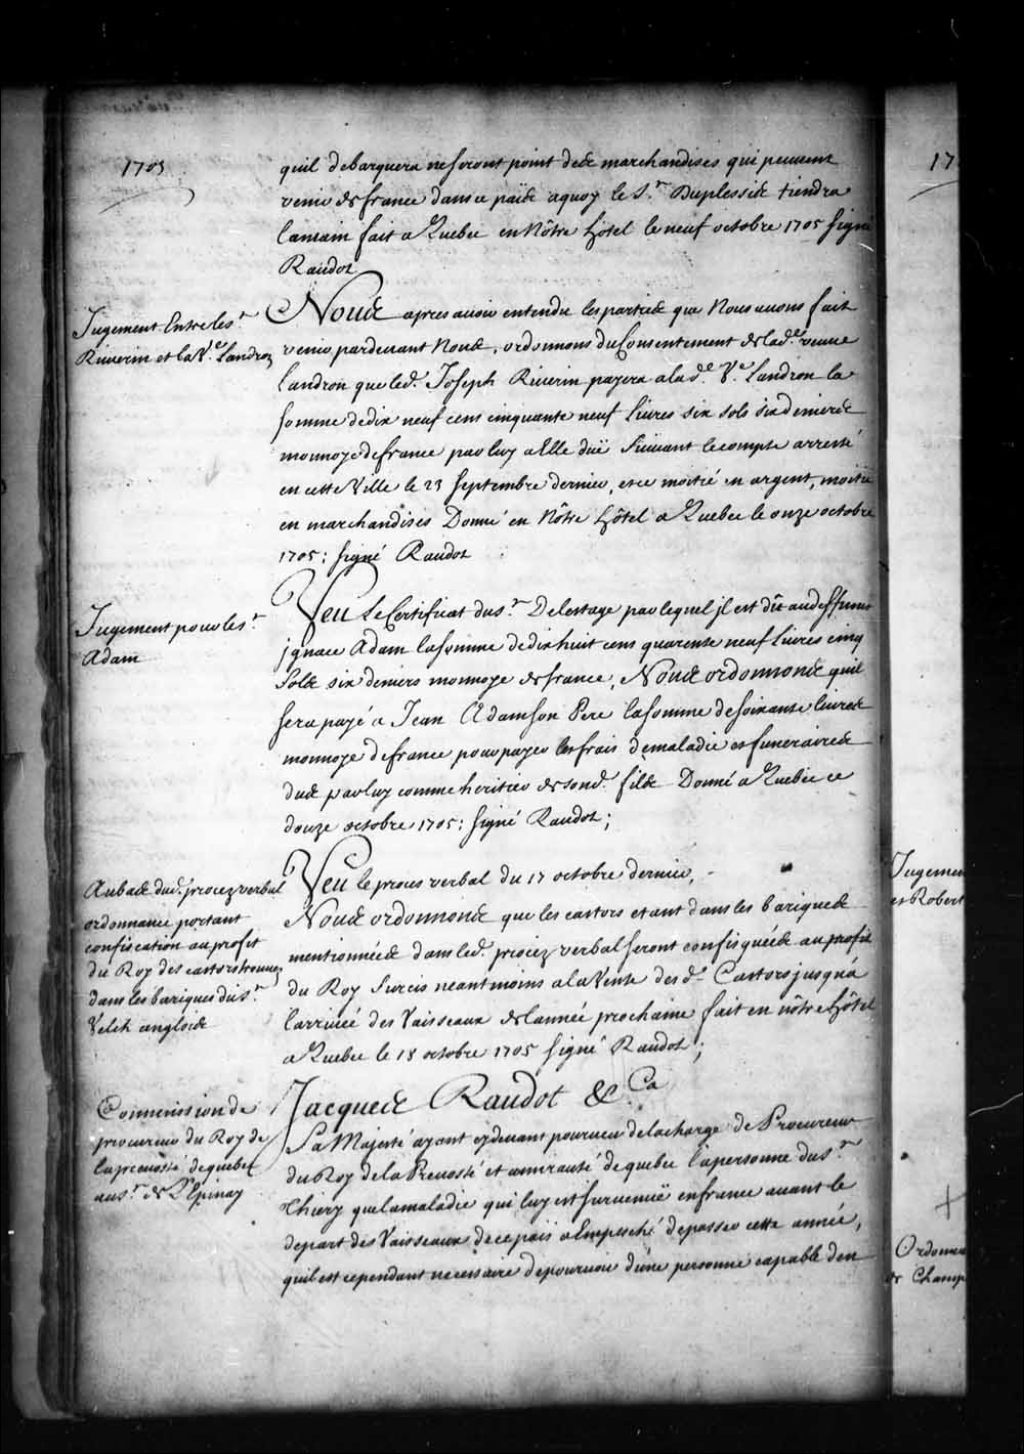 1705
quil debarquera ne seront point de de marchandises qui peuvent
venir de france dans ce païs aquoy le S.r Duplessis tiendra
la main fait a Quebec en Nôtre hôtel le neuf octobre 1705 signé
Raudot
Jugement Entre les.r
Riuerin et la V.e Landron
Nous apres auoir entendu les parties que Nous auons fait
venir pardeuant Nous, ordonnons du Consentement de lad.e veuue
Landron que led. Joseph Riuerin payera a lad.e V.e Landron la
somme de dix neuf cens cinquante neuf liures six sols six deniers
monnoye de france par luy a Elle düe Suiuant le compte arresté
en cette Ville le 23 septembre dernier, et ce moitié en argent, moitié
en marchandises Donné en Nôtre hôtel a Quebec le onze octobre
1705: signé Raudot
Jugement pour les.r
Adam
Veu Le Certificat du s.r Delestage par lequel jl est dû au deffunt
jgnace Adam la somme de dix huit cens quarente neuf Liures cinq
Sols six deniers monnoye de france, Nous ordonnons quil
sera payé a Jean Adam son Pere la somme de soixante liures
monnoye de france pour payer les frais de maladie et funeraires
dus par luy comme heritier de sond. fils Donné a Quebec ce
douze octobre 1705: signé Raudot;
Au bas dud. procez verbal
ordonnance portant
confiscation au profit
du Roy des castors trouuez
dans les bariques du s.r
Velch anglois
Veu le proces verbal du 17 octobre dernier,
Nous ordonnons que les castors etant dans les bariques
mentionnées dans led. procez verbal seront confisquées au profit
du Roy Surcis neantmoins a la Vente des d.s Castors jusqu'a
l'arriuée des Vaisseaux de l'année prochaine fait en nôtre hôtel
a Quebec le 18 octobre 1705 signé Raudot;
Commission de
procureur du Roy de
la preuosté de quebec
au s.r de L'Epinay
Jacques Raudot &.Ca
Sa Majesté ayant cydeuant pourueu de la charge de Procureur
du Roy de la Preuosté et amirauté de quebec la personne du s.r
Thiery que la maladie qui luy est suruenuë en france auant le
depart des Vaisseaux de ce païs a Empesché de passer cette année,
quil est cependant necessaire de pouruoir d'une personne capable d'en
17
Jugemen
et Robert
Ordonna
de Champ